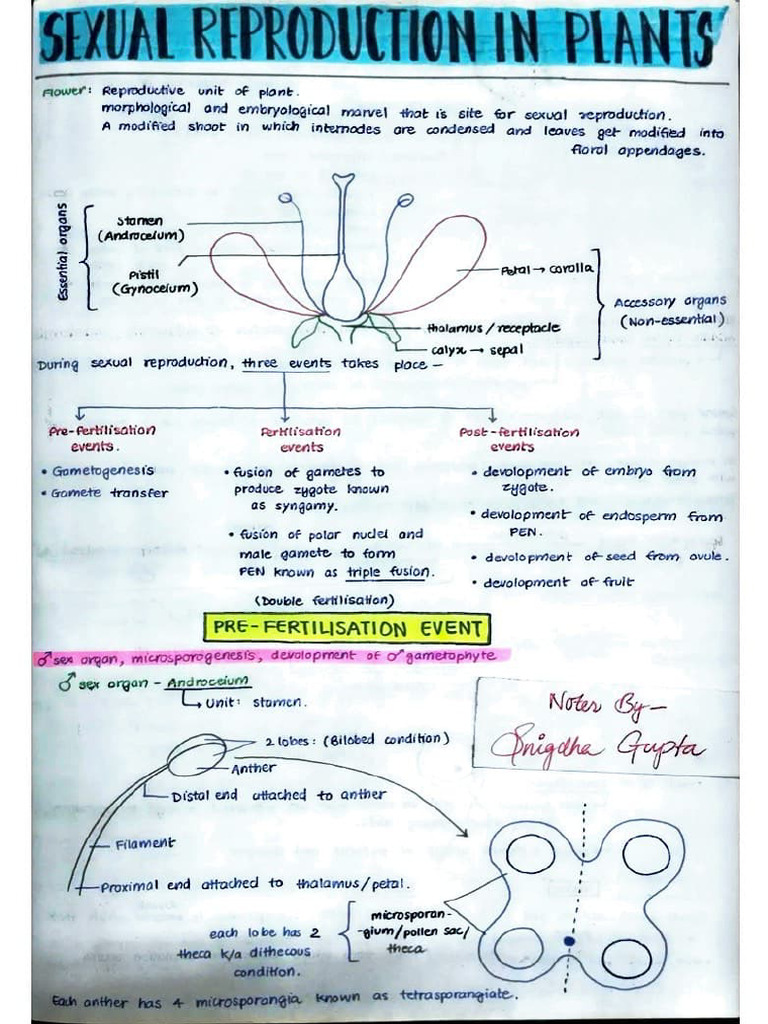 SEXUAL REPRODUCTION IN PLANTS
Flower: Reproductive unit of plant.
morphological and embryological marvel that is site for sexual reproduction.
A modified shoot in which internodes are condensed and leaves get modified into
floral appendages.
Essential organs
Stamen
(Androceium)
Pistil
(Gynoceium)
Petal → corolla
Accessory organs
(Non-essential)
thalamus / receptacle
calyx → sepal
During sexual reproduction, three events takes place —
Pre-fertilisation
events.
• Gametogenesis
• Gamete transfer
Fertilisation
events
• fusion of gametes to
produce zygote known
as syngamy.
• fusion of polar nuclei and
male gamete to form
PEN known as triple fusion.
(Double fertilisation)
Post-fertilisation
events
• devolopment of embryo from
zygote.
• devolopment of endosperm from
PEN.
• devolopment of seed from ovule.
• devolopment of fruit
PRE-FERTILISATION EVENT
♂ sex organ, microsporogenesis, devolopment of ♂ gametophyte
♂ sex organ - Androceium
Unit: stamen.
Notes By-
Snigdha Gupta
2 lobes: (Bilobed condition)
Anther
Distal end attached to anther
Filament
Proximal end attached to thalamus/petal.
each lobe has 2
theca k/a dithecous
condition.
microsporan-
-gium/pollen sac/
theca
Each anther has 4 microsporangia known as tetrasporangiate.